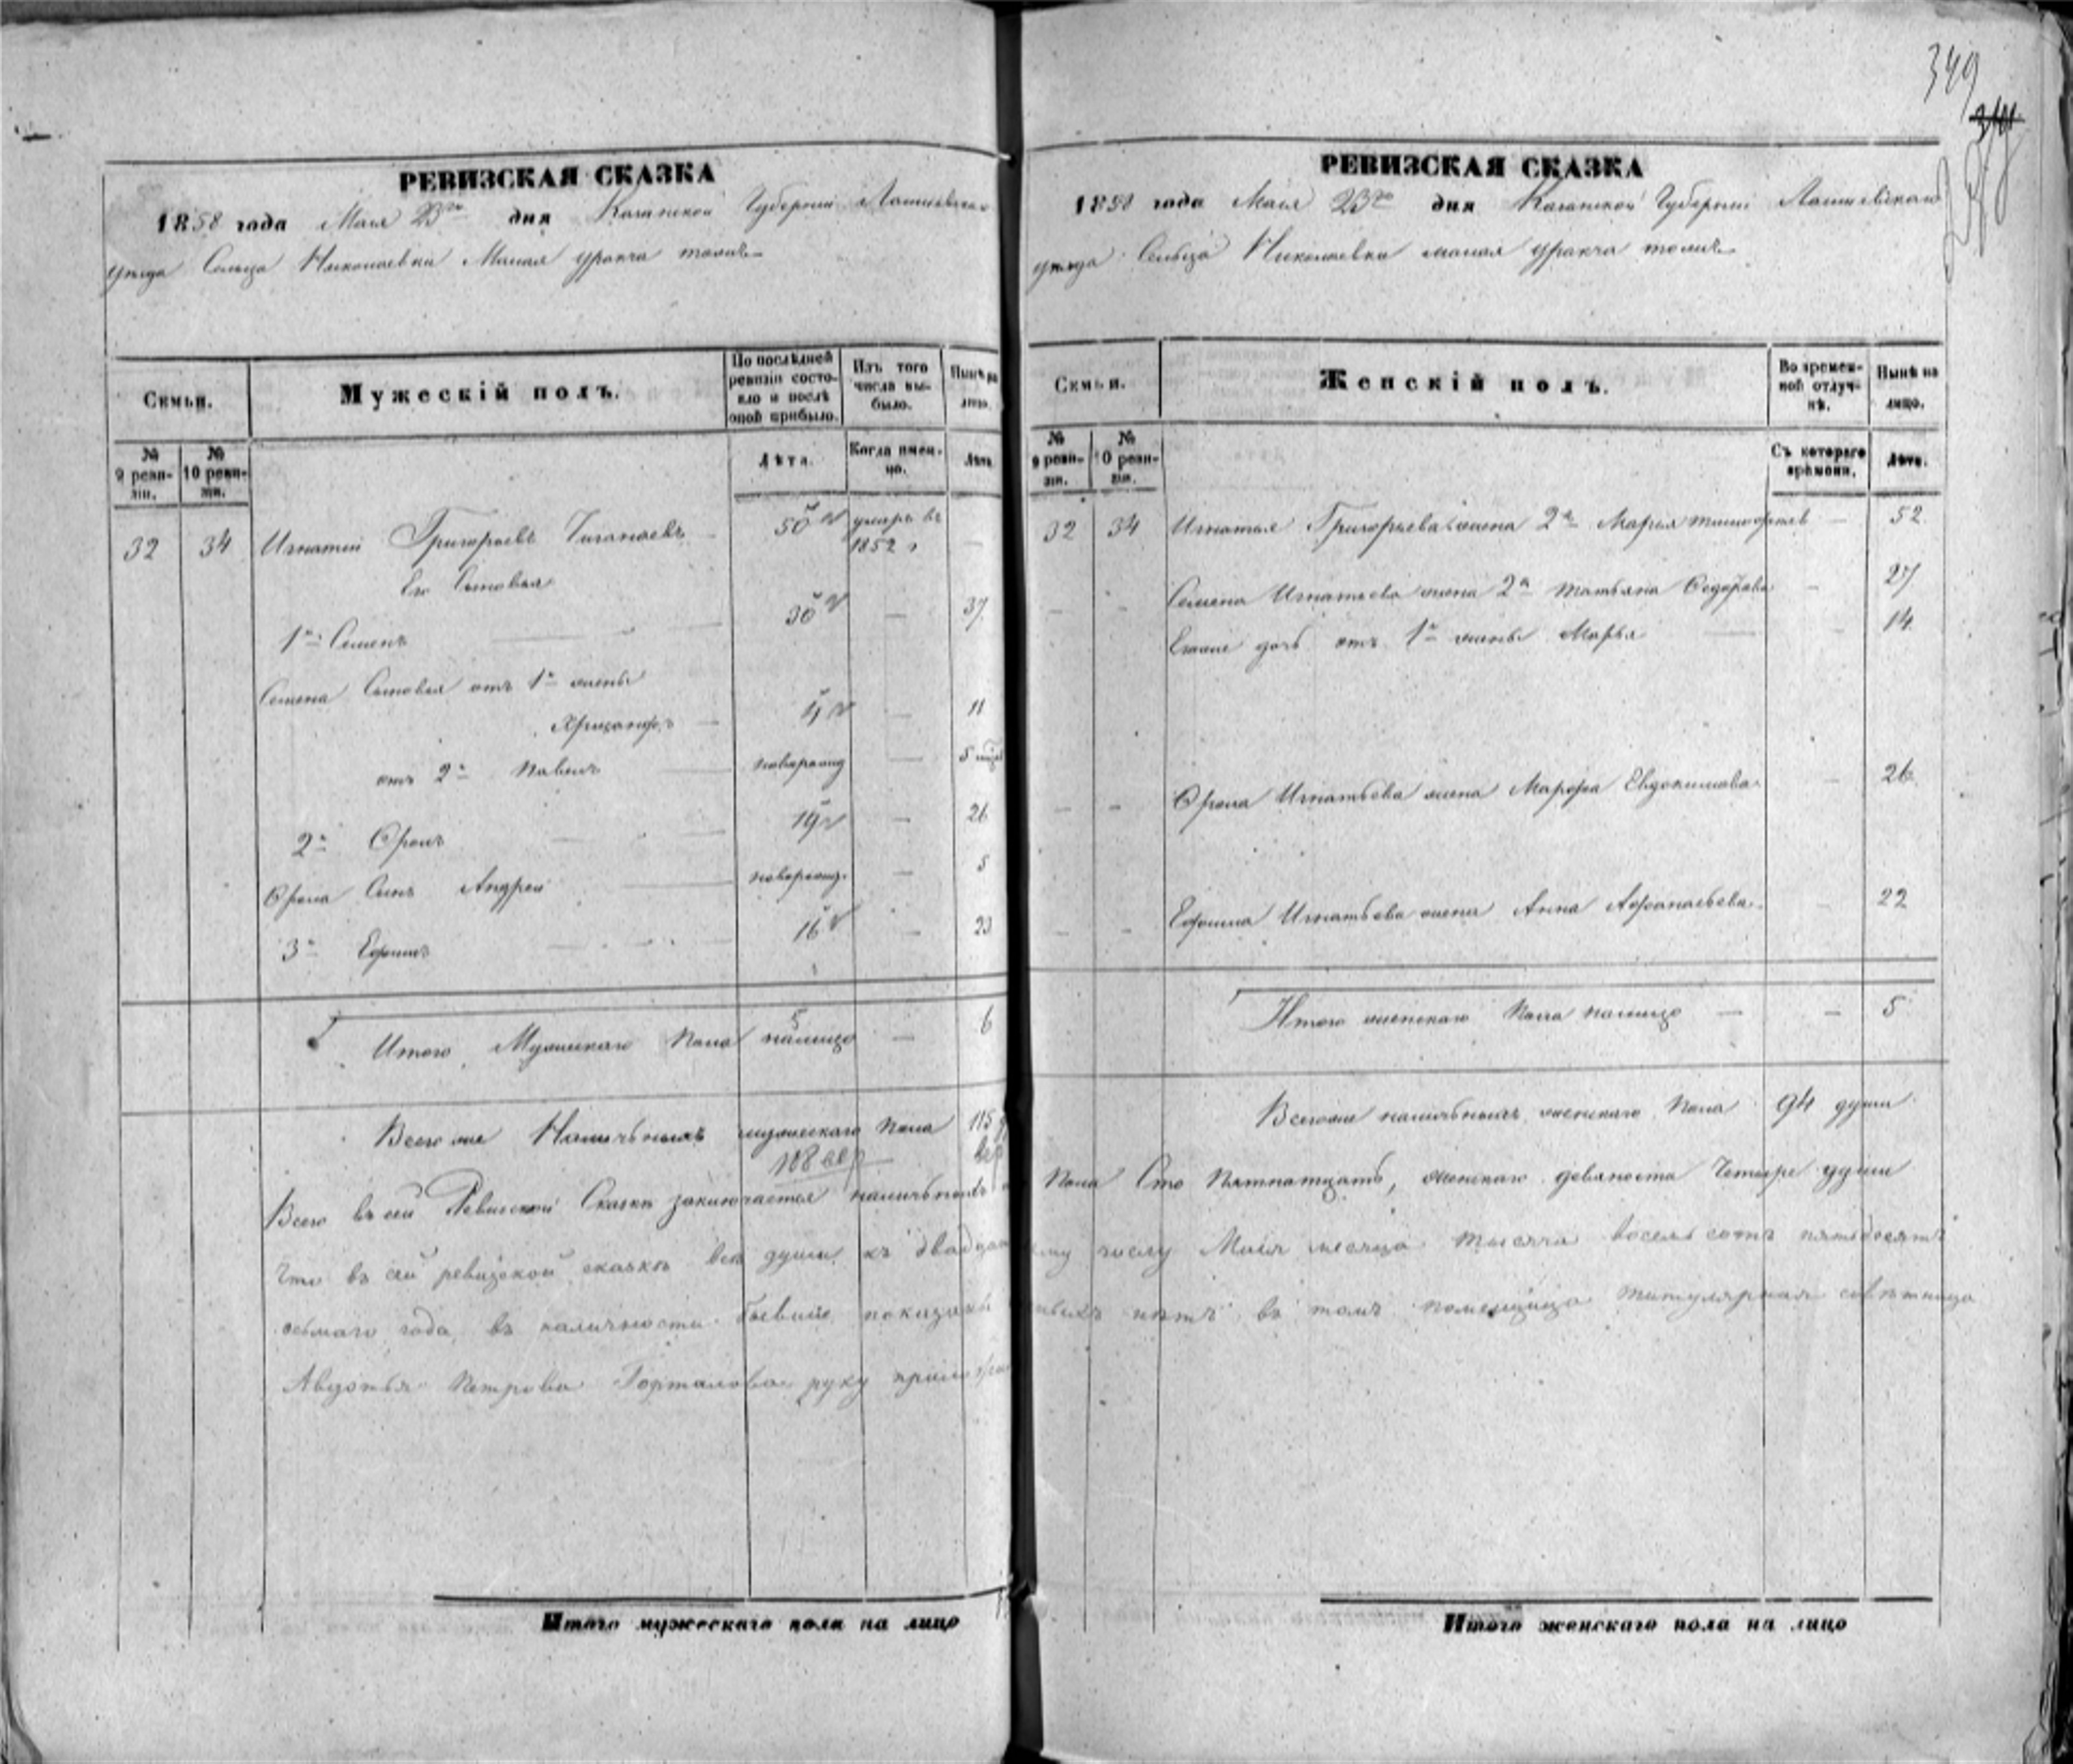 349
РЕВИЗСКАЯ СКАЗКА
1858 года Мая 23го дня Казанской Губернии Лаишевскаго
уезда Сельца Николаевки Малая уракча тожъ
Семьи.
Мужескій полъ.
По послѣдней ревизіи состояло и послѣ оной прибыло.
Изъ того числа выбыло.
Нынѣ на лицо.
№ 9 ревизіи.
№ 10 ревизіи.
Лѣта.
Когда именно.
Лѣта.
32 34 Игнатий Григорьевъ 50 умеръ въ 1852
Его Сыновья
1й Семенъ 30 — 37
Семена Сыновья отъ 1й жены
Хрисанфъ 4 — 11
отъ 2й Павелъ новорожд — 5
2й Фролъ 19 — 26
Фрола Сынъ Андрей новорожд. — 5
3й Ефимъ 16 — 23
5
Итого Мужескаго Пола налицо — 6
Всего же Наличныхъ мужескаго Пола 115
108
РЕВИЗСКАЯ СКАЗКА
1858 года Мая 23го дня Казанской Губернии Лаишевскаго
уезда Сельца Николаевки малая уракча тожъ
Семьи.
Женскій полъ.
Во временной отлучкѣ.
Нынѣ на лицо.
№ 9 ревизіи.
№ 10 ревизіи.
Съ котораго времени.
Лѣта.
32 34 Игнатья Григорьева жена 2я Марья — 52
Семена Игнатьева жена 2я татьяна Федорова — 27
Егоже дочь отъ 1й жены Марья — 14
Фрола Игнатьева жена Марфа Евдокимова — 26
Ефима Игнатьева жена Анна Афанасьева — 22
Итого женскаго Пола налицо — — 5
Всегоже наличныхъ женскаго Пола 94 души
Всего въ сей Ревизской Сказке заключается наличныхъ Пола Сто Пятнатцать, женскаго девяноста Четыре души
Что въ сей ревизской сказке все души къ числу Мая месяца тысяча восемь сотъ пятьдесятъ
осьмаго года въ наличности бывшие показаны нетъ въ томъ помещица титулярная советница
Авдотья Петрова руку приложила
Итого мужескаго пола на лицо
Итого женскаго пола на лицо